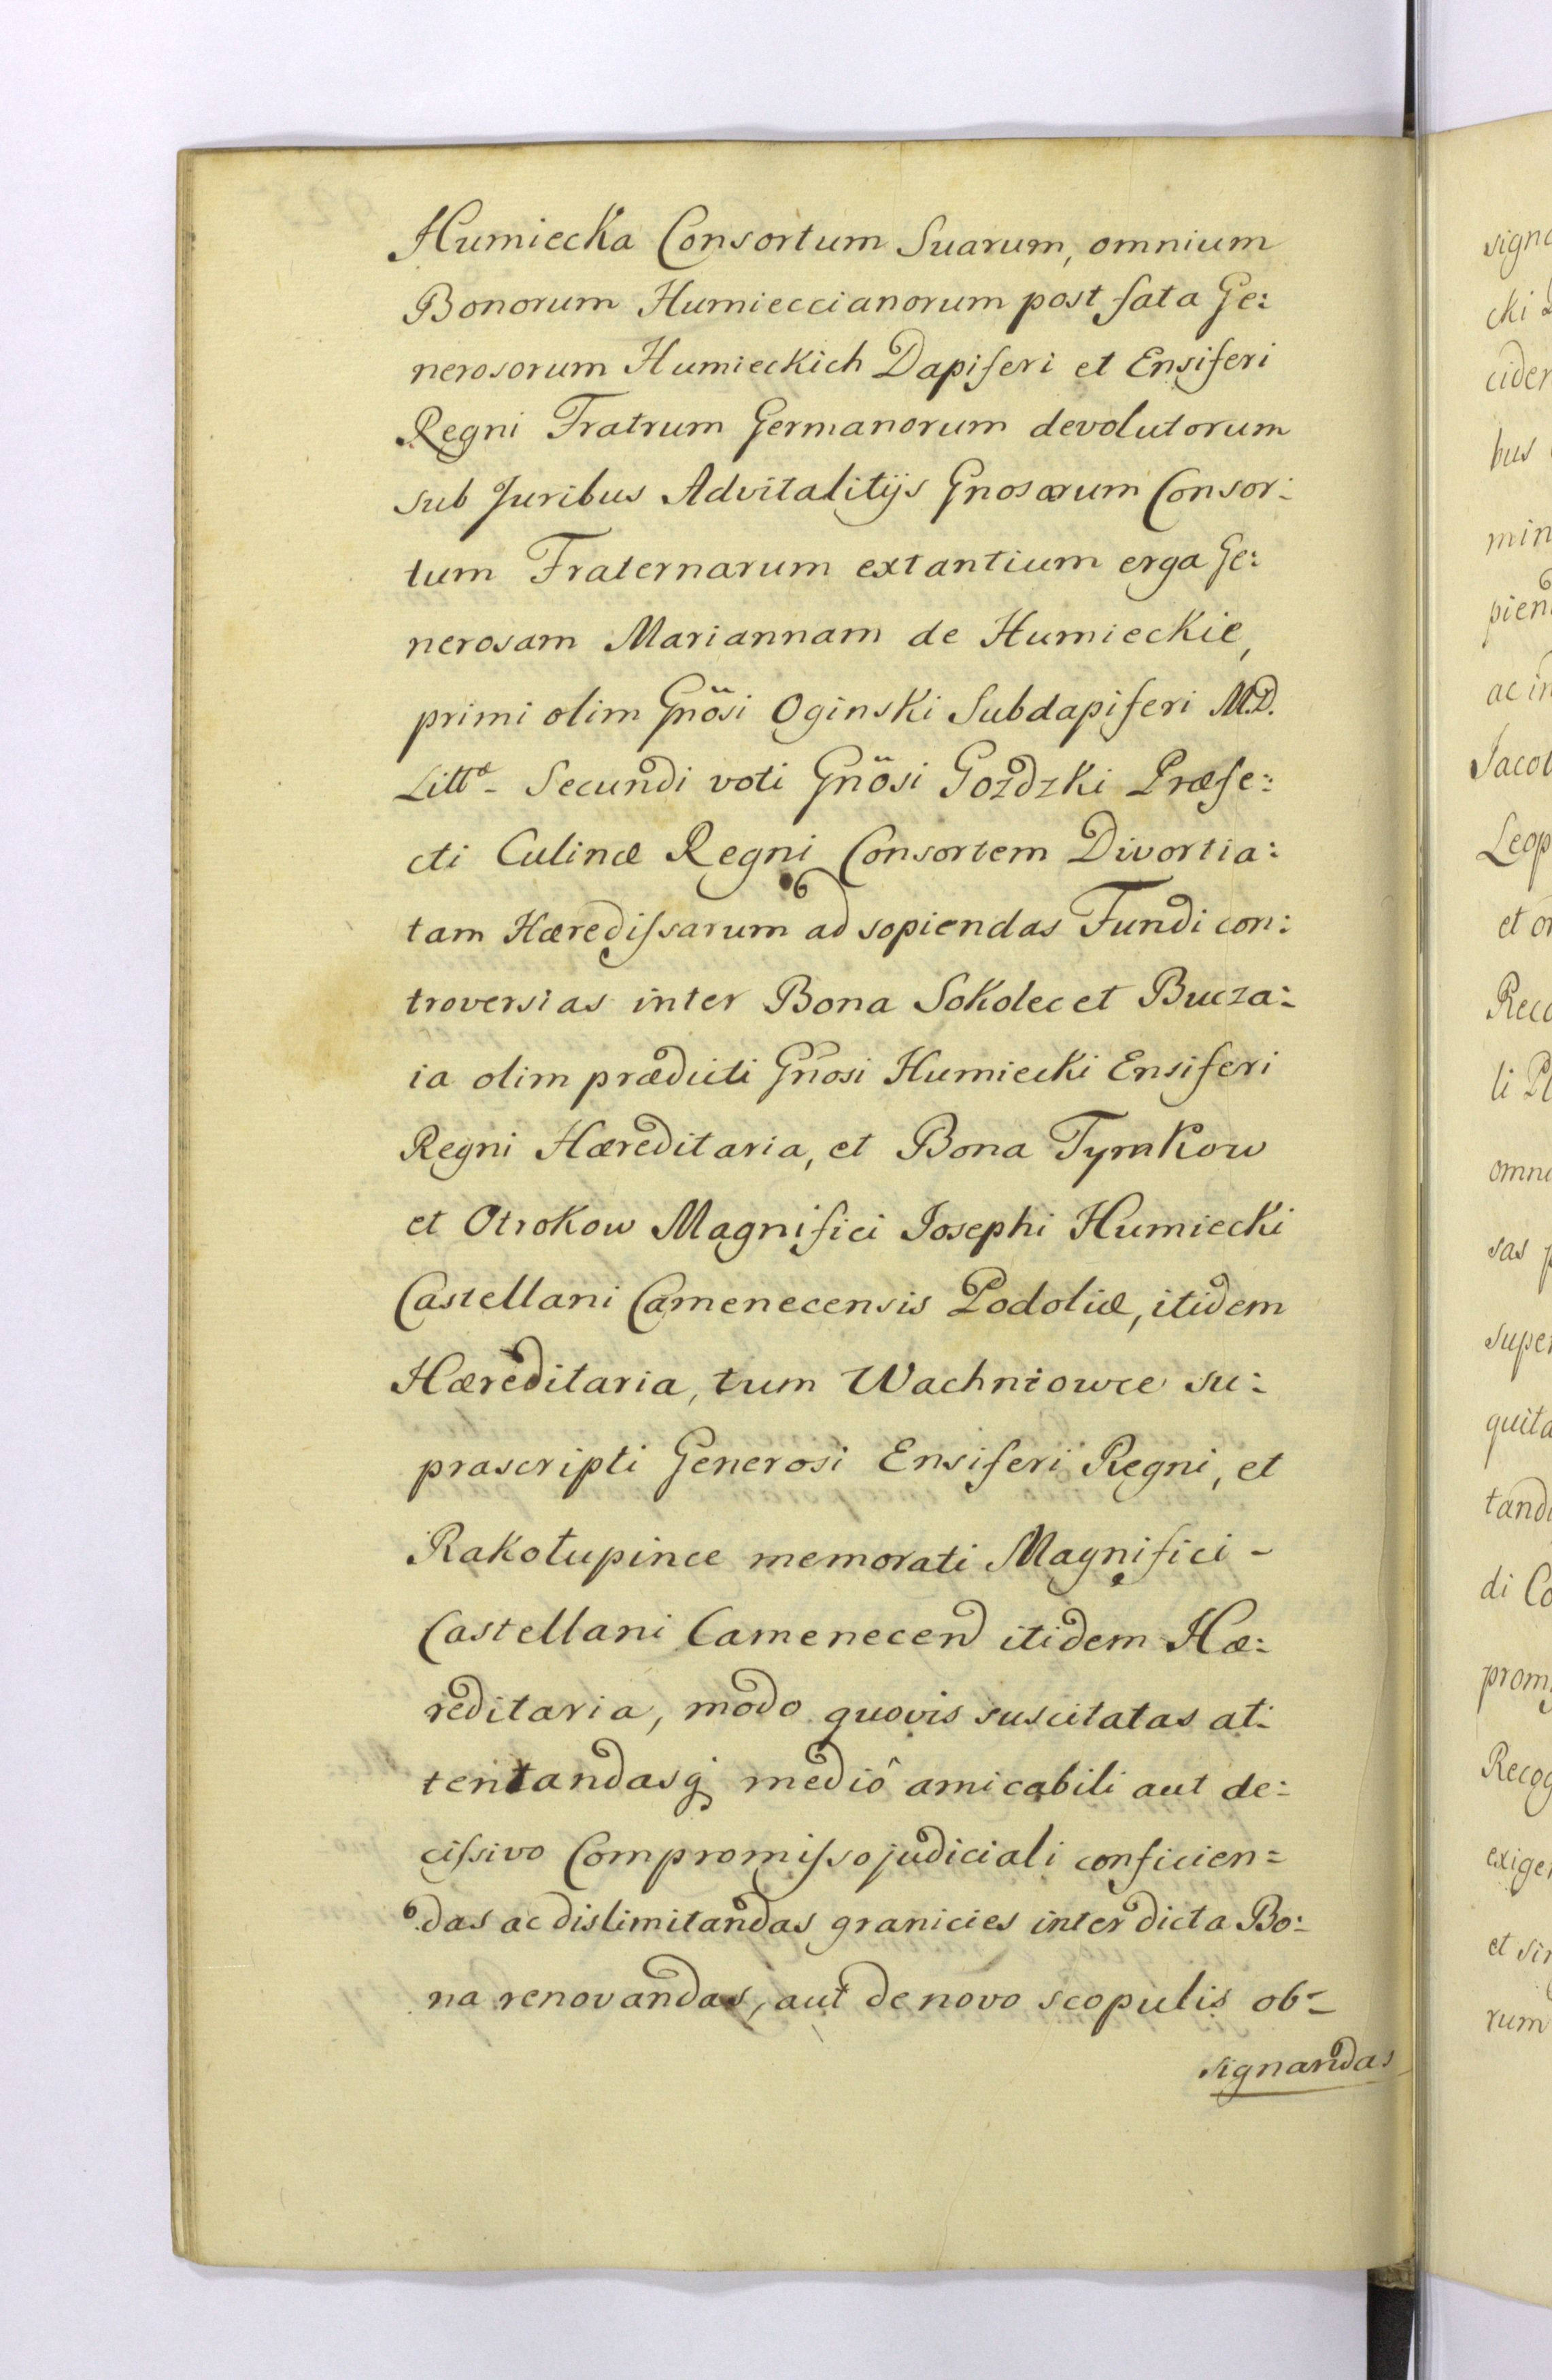 Humiecka Consortum Suarum, omnium
Bonorum Humieccianorum post fata Ge:
nerosorum Humieckich Dapiferi et Ensiferi
Regni Fratrum Germanorum devolutorum
sub Juribus Advitalitijs Gnosarum Consor:
tum Fraternarum extantium erga Ge:
nerosam Mariannam de Humieckie,
primi olim Gnosi Oginski Subdapiferi M.D.
Littæ - Secundi voti Gnosi Gozdzki Præfe:
cti Culinæ Regni Consortem Divortia:
tam Hæredissarum ad sopiendas Fundi con:
troversias inter Bona Sokolec et Bucza:
ia olim prædicti Gnosi Humiecki Ensiferi
Regni Hæreditaria, et Bona Tymkow
et Otrokow Magnifici Josephi Humiecki
Castellani Camenecensis Podoliæ, itidem
Hæreditaria, tum Wachniowce su:
prascripti Generosi Ensiferi Regni, et
Rakołupince memorati Magnifici -
Castellani Camenecen itidem Hæ:
reditaria, modo quovis suscitatas at:
tentandasq medio amicabili aut de:
cissivo Compromisso judiciali conficien=
das ac dislimitandas granicies inter dicta Bo:
na renovandas, aut de novo scopulis ob-
signandas
signa
cki
cider
bus
min
pien
ac in
Jacob
Leop
et or
Reco
li Pl
omni
sas p
super
quita
tandi
di Co
prom
Recog
exiger
et sin
rum